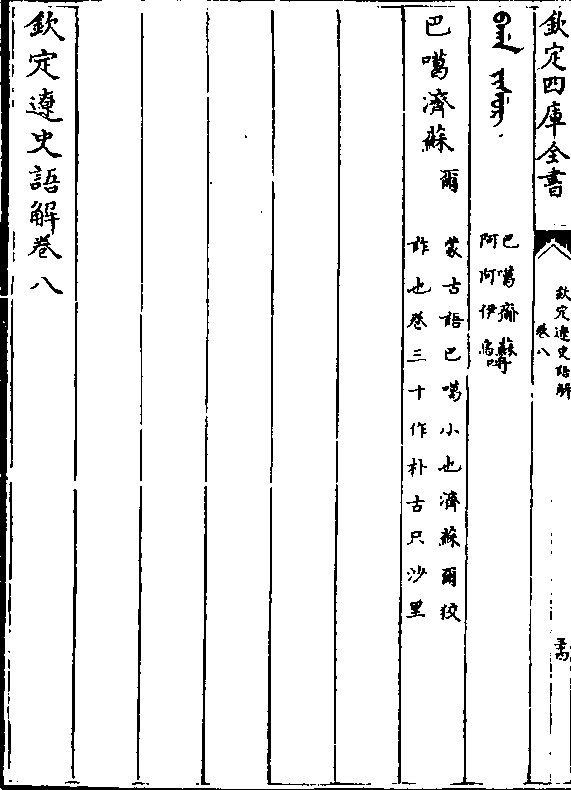 欽定四庫全書
欽定遼史語解
卷八
巴噶齊蘇哷
阿阿伊烏
巴噶濟蘇爾
蒙古語巴噶小也濟蘇爾狡
詐也卷三十作朴古只沙里
欽定遼史語解卷八